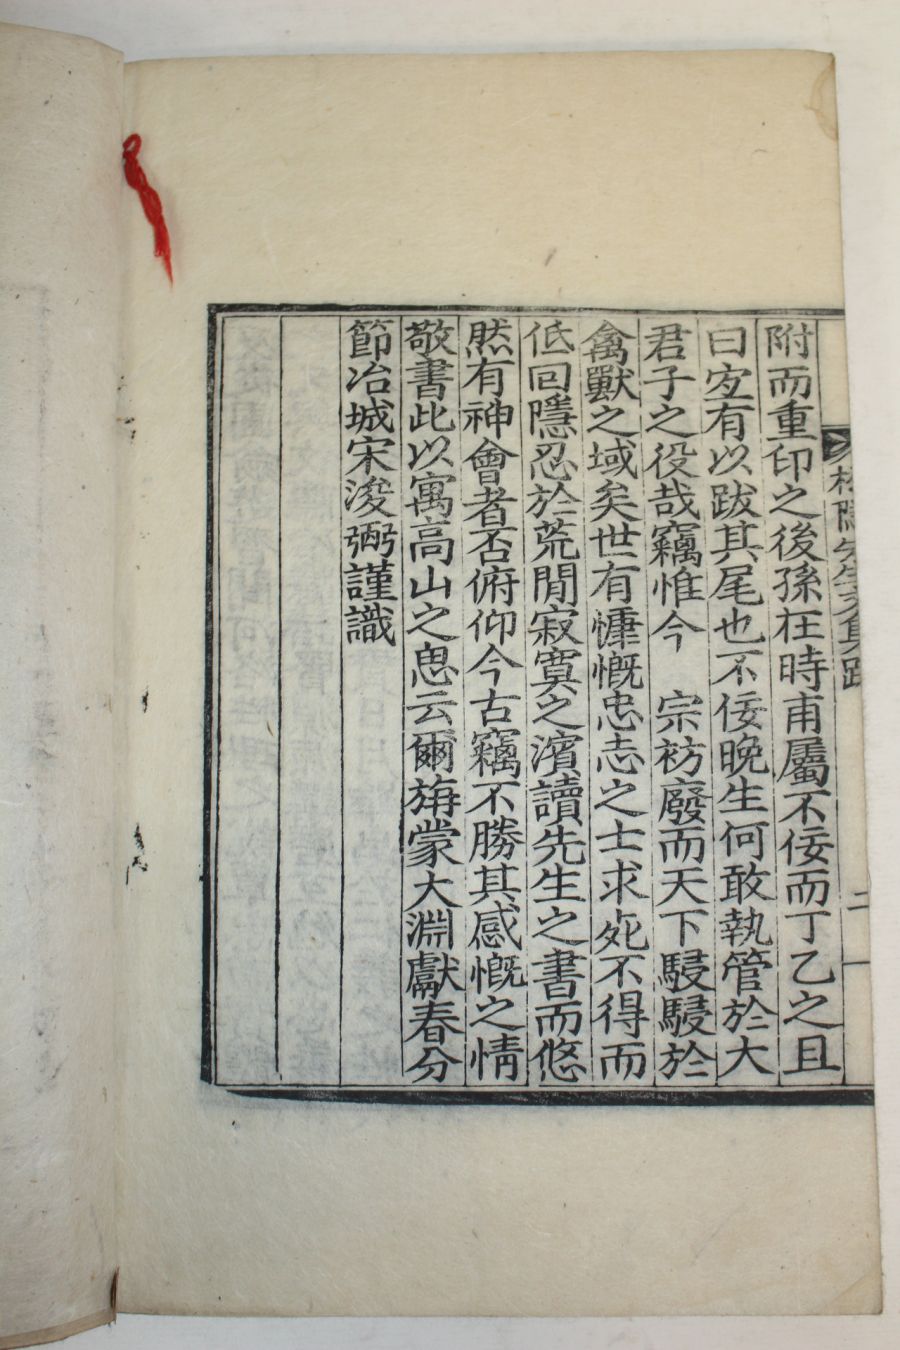 隱先生文集跋
二
附而重印之後孫在時甫屬不佞而丁乙之且
曰宐有以跋其尾也不佞晩生何敢執管於大
君子之役哉竊惟今　宗祊廢而天下駸駸於
禽獸之域矣世有慷慨忠志之士求死不得而
低回隱忍於荒閒寂寞之濱讀先生之書而悠
然有神會者否俯仰今古竊不勝其感慨之情
敬書此以寓高山之思云爾旃蒙大淵獻春分
節冶城宋浚弼謹識